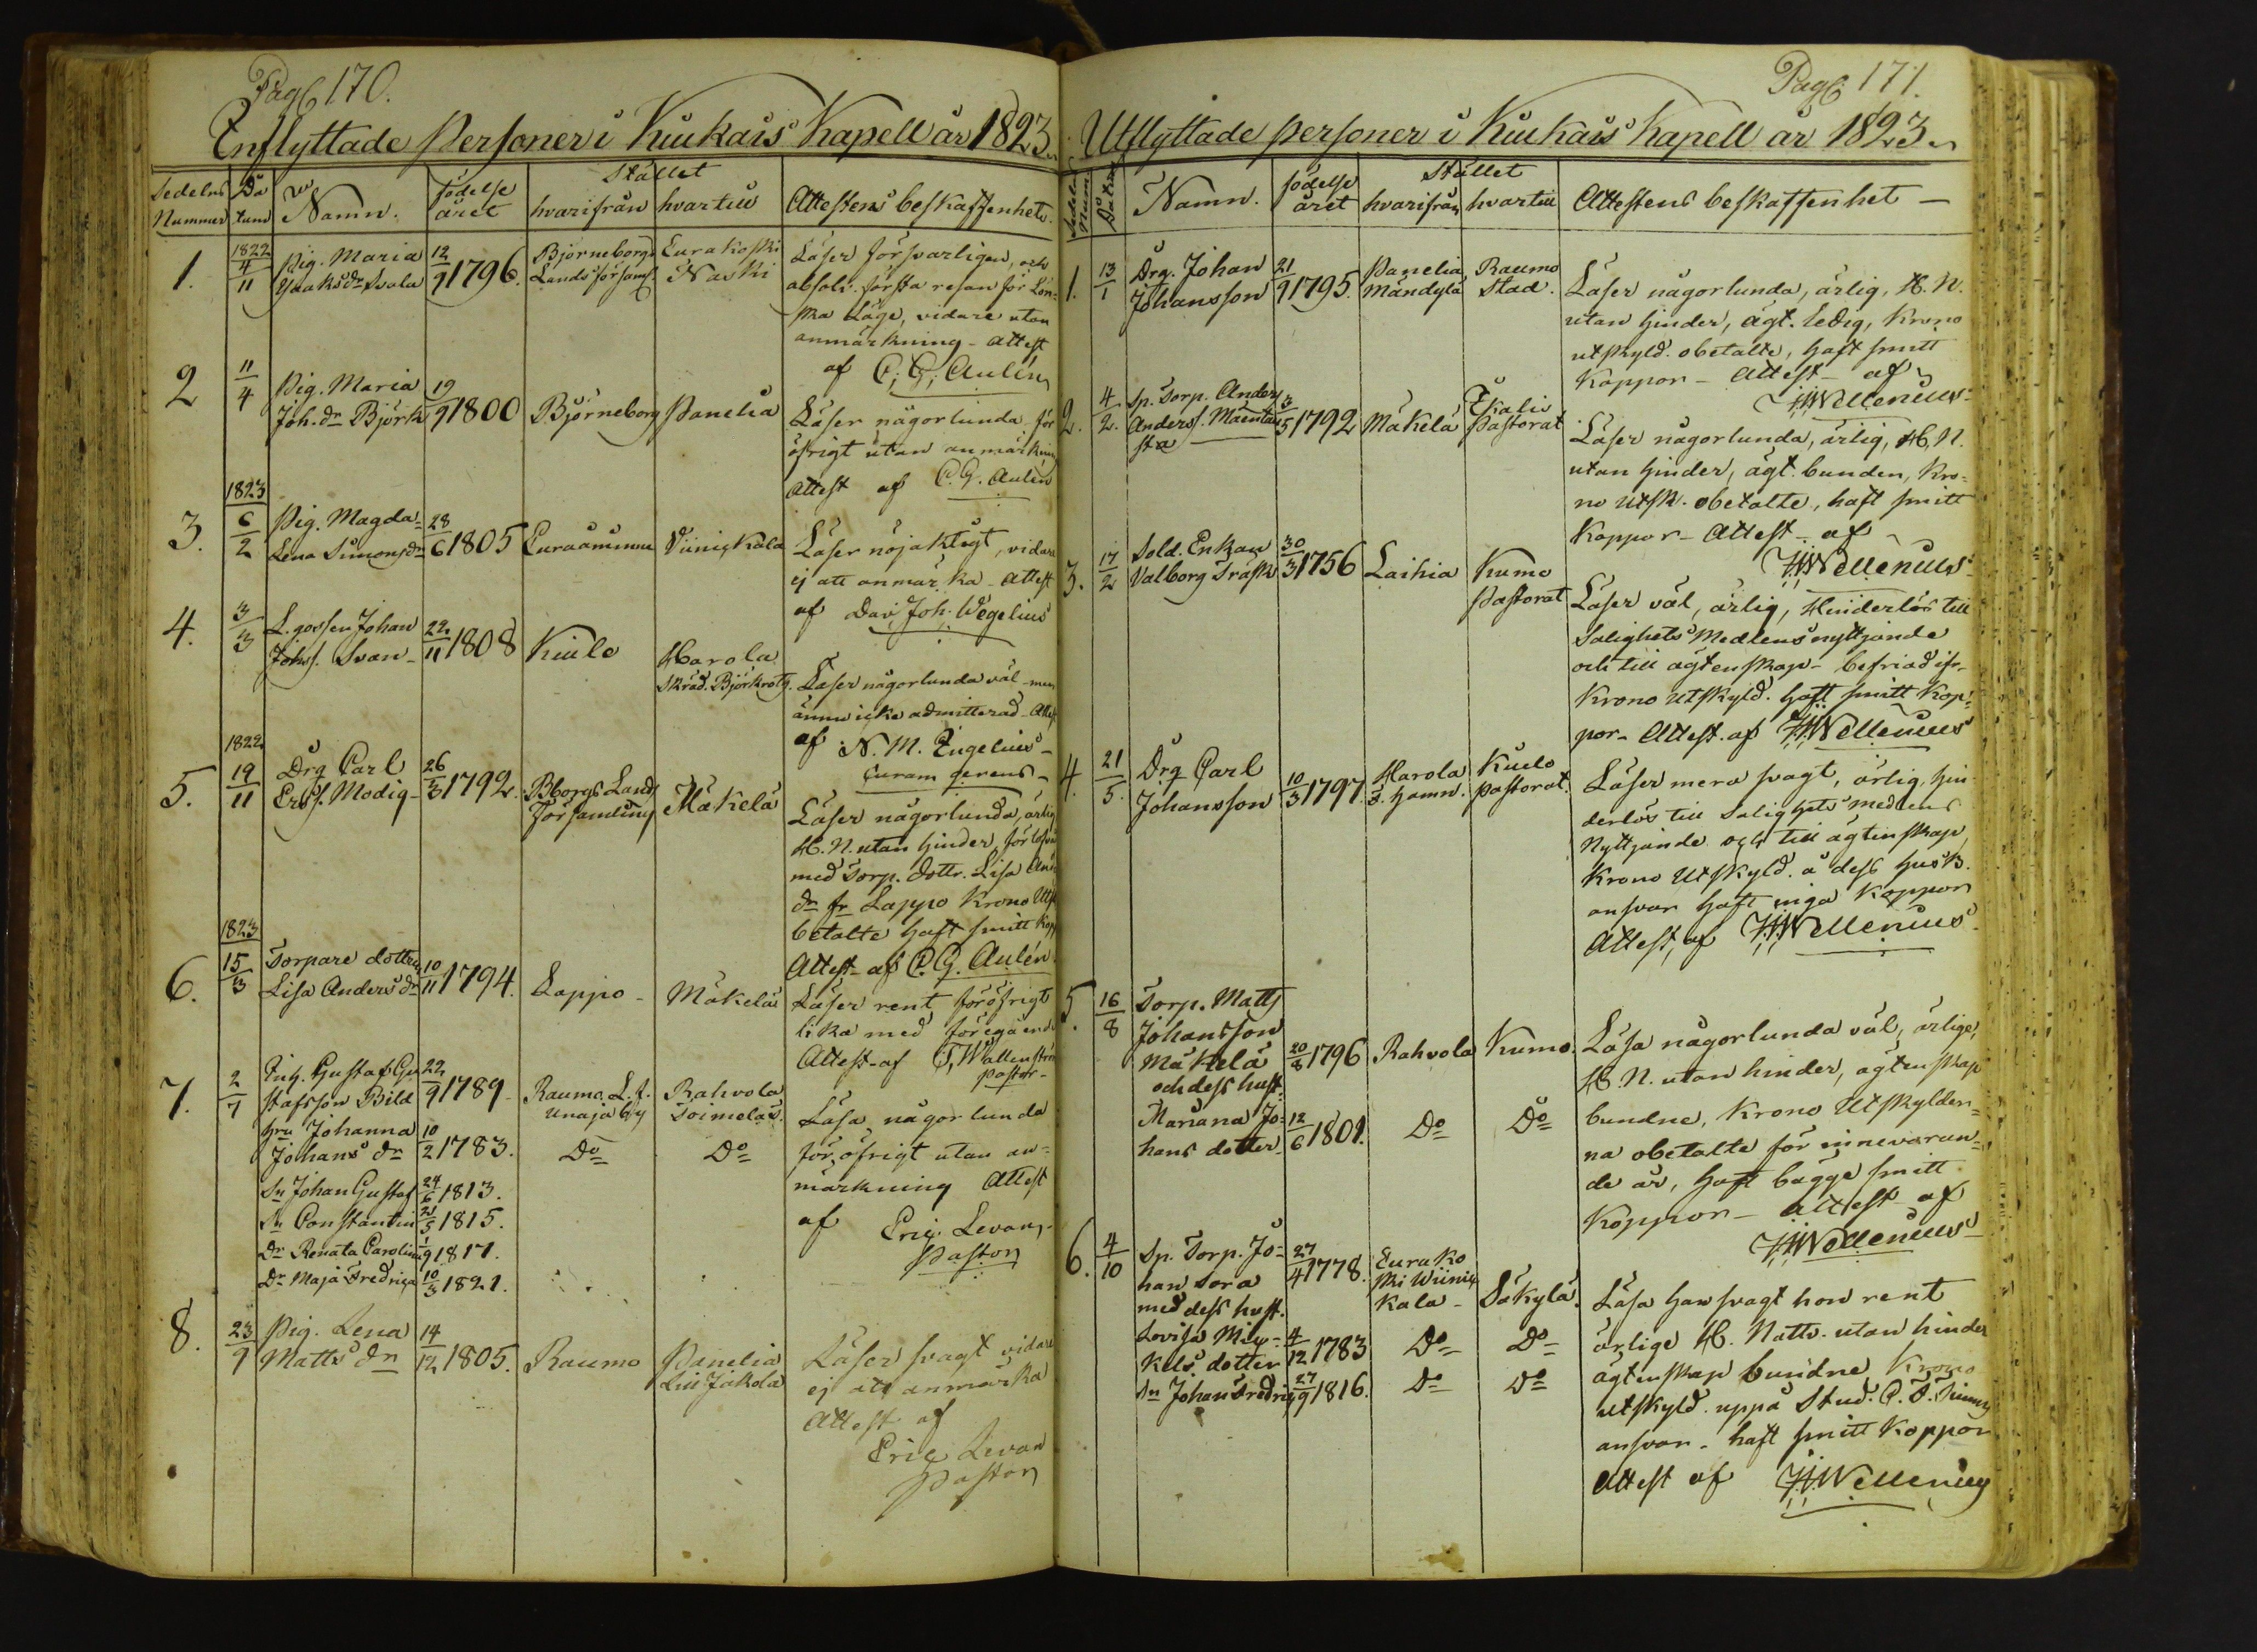 Pag 170.
Inflyttade Personer i Kiukais Kapell år 1823
Sedelns Nummer
Datum
Namn.
födelse året
Stället
hvarifrån
hvartill
Attestens beskaffenhet.
1.
1822 4/11
Pig. Maria
Isaks dr Svala
12/9 1796.
Björneborgs
Lands församl
Eurakoski
Naski
Läser försvarligen, och
absolv. första resan för Lön-
ska Läge, vidare utan
anmärkning - Attest
af C. G. Aulén
2
11/4
Pig. Maria
Joh. dr Björk
19/9 1800
Björneborg
Panelia
Läser någorlunda för
öfrigt utan anmärkn
Attest af C. G. Aulén
3.
1823 6/2
Pig. Magda-
Lena Simons dr
28/6 1805
Euraåminne
Viinickala
Läser nöjaktigt, vidare
ej att anmärka - Attest
af Dav. Joh. Wegelius
4.
3/3
L. gossen Johan
Johs. Svan -
22/11 1808
Kiulo
Harola
Skräd. Björkrotz.
Läser någorlunda väl - men
ännu icke admitterad - Attest
af N. M. Tngelius -
Curam gerens -
5.
1822 19/11
Drg Carl
Ers s. Modig -
26/3 1792.
Bborgs Lands
Församling
Mäkelä
Läser någorlunda, ärlig
H. N. utan hinder, förlofvad
med Torp. dottr. Lisa And
dr fr Lappo Krono Utsk
betalte haft smitt Kopp
Attest af C. G. Aulén
6.
1823 15/3
Torpare dottren
Lisa Anders dr
10/11 1794.
Lappo -
Mäkelä
Läser rent föröfrigt
lika med föregående
Attest - af T, Wallenström
pastor -
7.
2/7
Inh. Gustaf Gu
stafsson Bild
22/9 1789 -
Raumo L. f.
Unaja by
Rahvola
Toimelas.
Läsa någorlunda
för öfrigt utan an-
märkning Attest
af Eric Levan,
Pastor
hru Johanna
Johans dr
10/2 1783.
Do
Do
Sn Johan Gustaf 24/6 1813.
Sn Constantin 21/5 1815.
Dr Renata Carolina 1/9 1817.
Dr Maja Fredrica 10/3 1821.
8.
23/9
Pig. Lena
Matts dr
14/12 1805.
Raumo
Panelia
Lill Jakola
Läser svagt vidare
ej att anmärka
Attest af
Eric Levan
Pastor
Pag 171.
Utflyttade personer i Kiukais Kapell år 1823
Sedeln Num
Datum
Namn.
födelse året
Stället
hvarifrån
hvartill
Attestens beskaffenhet -
1.
13/1
Drg. Johan
Johansson
21/9 1795.
Panelia
Mändylä
Raumo
Stad.
Läser någorlunda, ärlig, H. N.
utan hinder, ägt. ledig, Krono
utskyld. obetalte, haft smitt
Koppor - Attest - af
Wellenius
2.
4/2.
Sp. Torp. Anders
Anders s. Mäentau
sta
3/5 1792
Mäkelä
Ikalis
Pastorat
Läser någorlunda, ärlig, H, N.
utan hinder, ägt. bunden, Kro-
no utsk. obetalte, haft smitt
Koppor - Attest - af
Wellenius
3.
17/2
Sold. Enkan
Valborg Träsk
30/3 1756
Laihia
Kumo
Pastorat
Läser väl, ärlig, Hinderlös till
Salighets Medlens nyttjande
och till ägtenskap - befriad ifr.
Krono Utskyld. haft smitt Kop-
por - Attest. af Wellenius
4.
21/5.
Drg Carl
Johansson
10/3 1797.
Harola
S. hemn.
Kiulo
Pastorat
Läser mera svagt, ärlig, hin-
derlös till Salighets medlens
Nyttjande och till ägtenskap
Krono Utskyld. å dess husb.
ansvar haft inga Koppor
Attest, af Wellenius
5.
16/8
Torp. Matts
Johansson
Mäkelä
och dess hust.
Mariana Jo-
hans dotter
20/8 1796
12/6 1801.
Rahvola
Kumo.
Do
Do
Läsa någorlunda väl, ärlige,
H. N. utan hinder, ägtenskap
bundne, Krono Utskylder-
na obetalte för innevaran-
de år, haft bägge smitt
Koppor - Attest af
Wellenius
6.
4/10
Sp. Torp. Jo-
han Sora
med dess hust.
Lovisa Mic-
kels dotter
Sn Johan Fredric
27/4 1778.
4/12 1783
27/9 1816.
Eurako
ski Wiinic
kala -
Säkylä.
Do
Do
Do
Do
Läsa han svagt hon rent
ärlige H. Nattv. utan hinder
ägtenskap bundne Krono
utskyld. uppå Stud.
ansvar - haft smitt Koppor
Attest af Wellenius